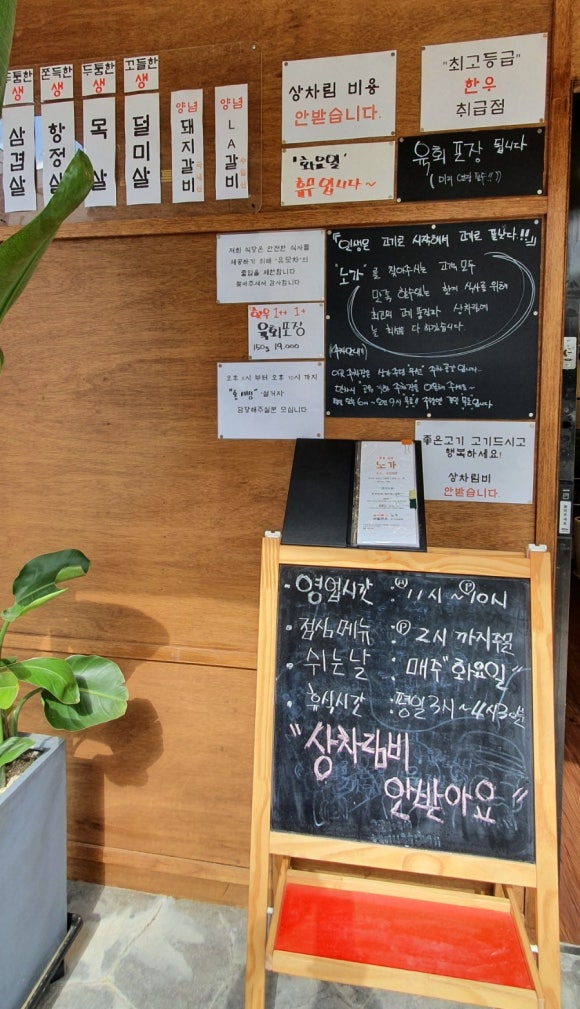 두툼한
생
삼겹살
쫀득한
생
항정살
두툼한
생
목살
꼬들한
생
덜미살
양념
돼지갈비
양념
LA갈비
상차림 비용
안받습니다.
"최고등급"
한우
취급점
'화요일'
휴무 입니다~
육회 포장 됩니다
"인생은 고기로 시작해서 고기로 끝난다.!!"
"노가"를 찾아주시는 고객님 모두
만족 할수있는 한끼 식사를 위해
최고의 고기 품질과 상차림에
늘 최선을 다 하겠습니다.
저희 식당은 안전한 식사를
제공하기 위해 "유모차"의
출입을 제한합니다
찾아주셔서 감사합니다
한우 1++ 1+
육회포장
150g 19,000
오후 5시 부터 오후 10시 까지
설거지
담당해주실분 모십니다
좋은고기 고기드시고
행복하세요!
상차림비
안받습니다.
노가
·영업시간 : 11시~10시
·점심메뉴 : P 2시 까지주문
·쉬는날 : 매주"화요일"
·휴식시간 : 평일3시~4시30분
"상차림비
안받아요"